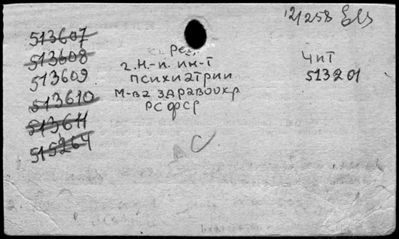 12/258
513607
513608
513609
513610
513611
515264
г. Н-и. ин-т
психиатрии
М-ва здравоохр
РСФСР
Чит
513201
С